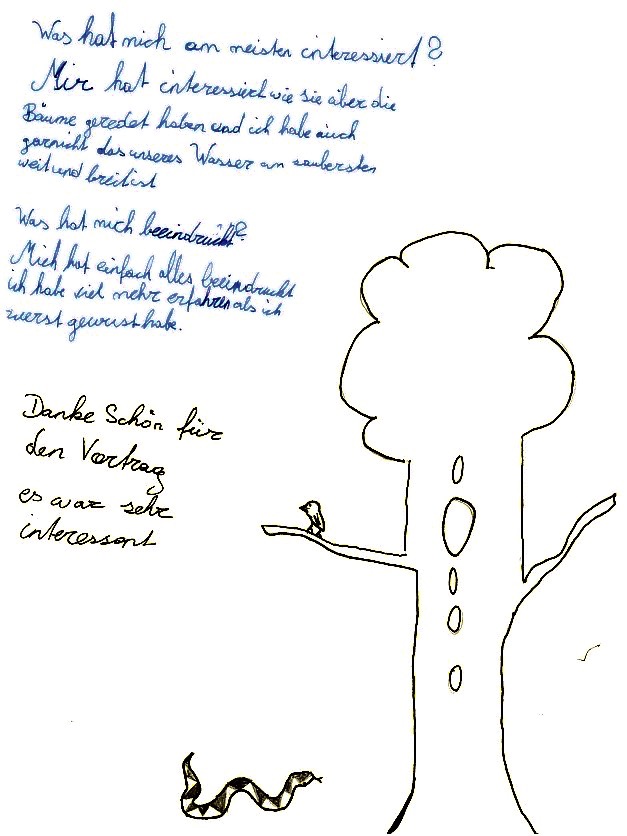 Was hat mich am meisten interessiert?
Mir hat interessiert wie sie über die
Bäume geredet haben und ich habe auch
garnicht das unseres Wasser am saubersten
weit und breit ist
Was hat mich beeindruckt?
Mich hat einfach alles beeindruckt
ich habe viel mehr erfahren als ich
zuerst gewust habe.
Danke Schön für
den Vortrag
es war sehr
interessant